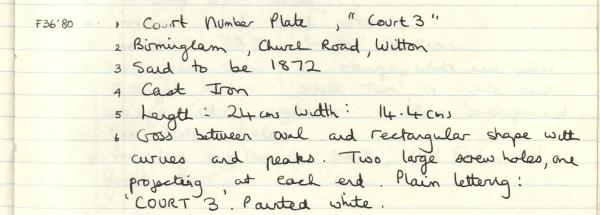 F36'80 1 Court Number Plate, "Court 3"
2 Birmingham, Church Road, Witton
3 Said to be 1872
4 Cast Iron
5 Length: 24 cms Width: 14.4 cms
6 Cross between oval and rectangular shape with
curves and peaks. Two large screw holes, one
projecting, at each end. Plain lettering:
'COURT 3'. Painted white.